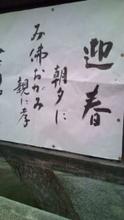 迎春
朝夕に
み佛おがみ
親に孝